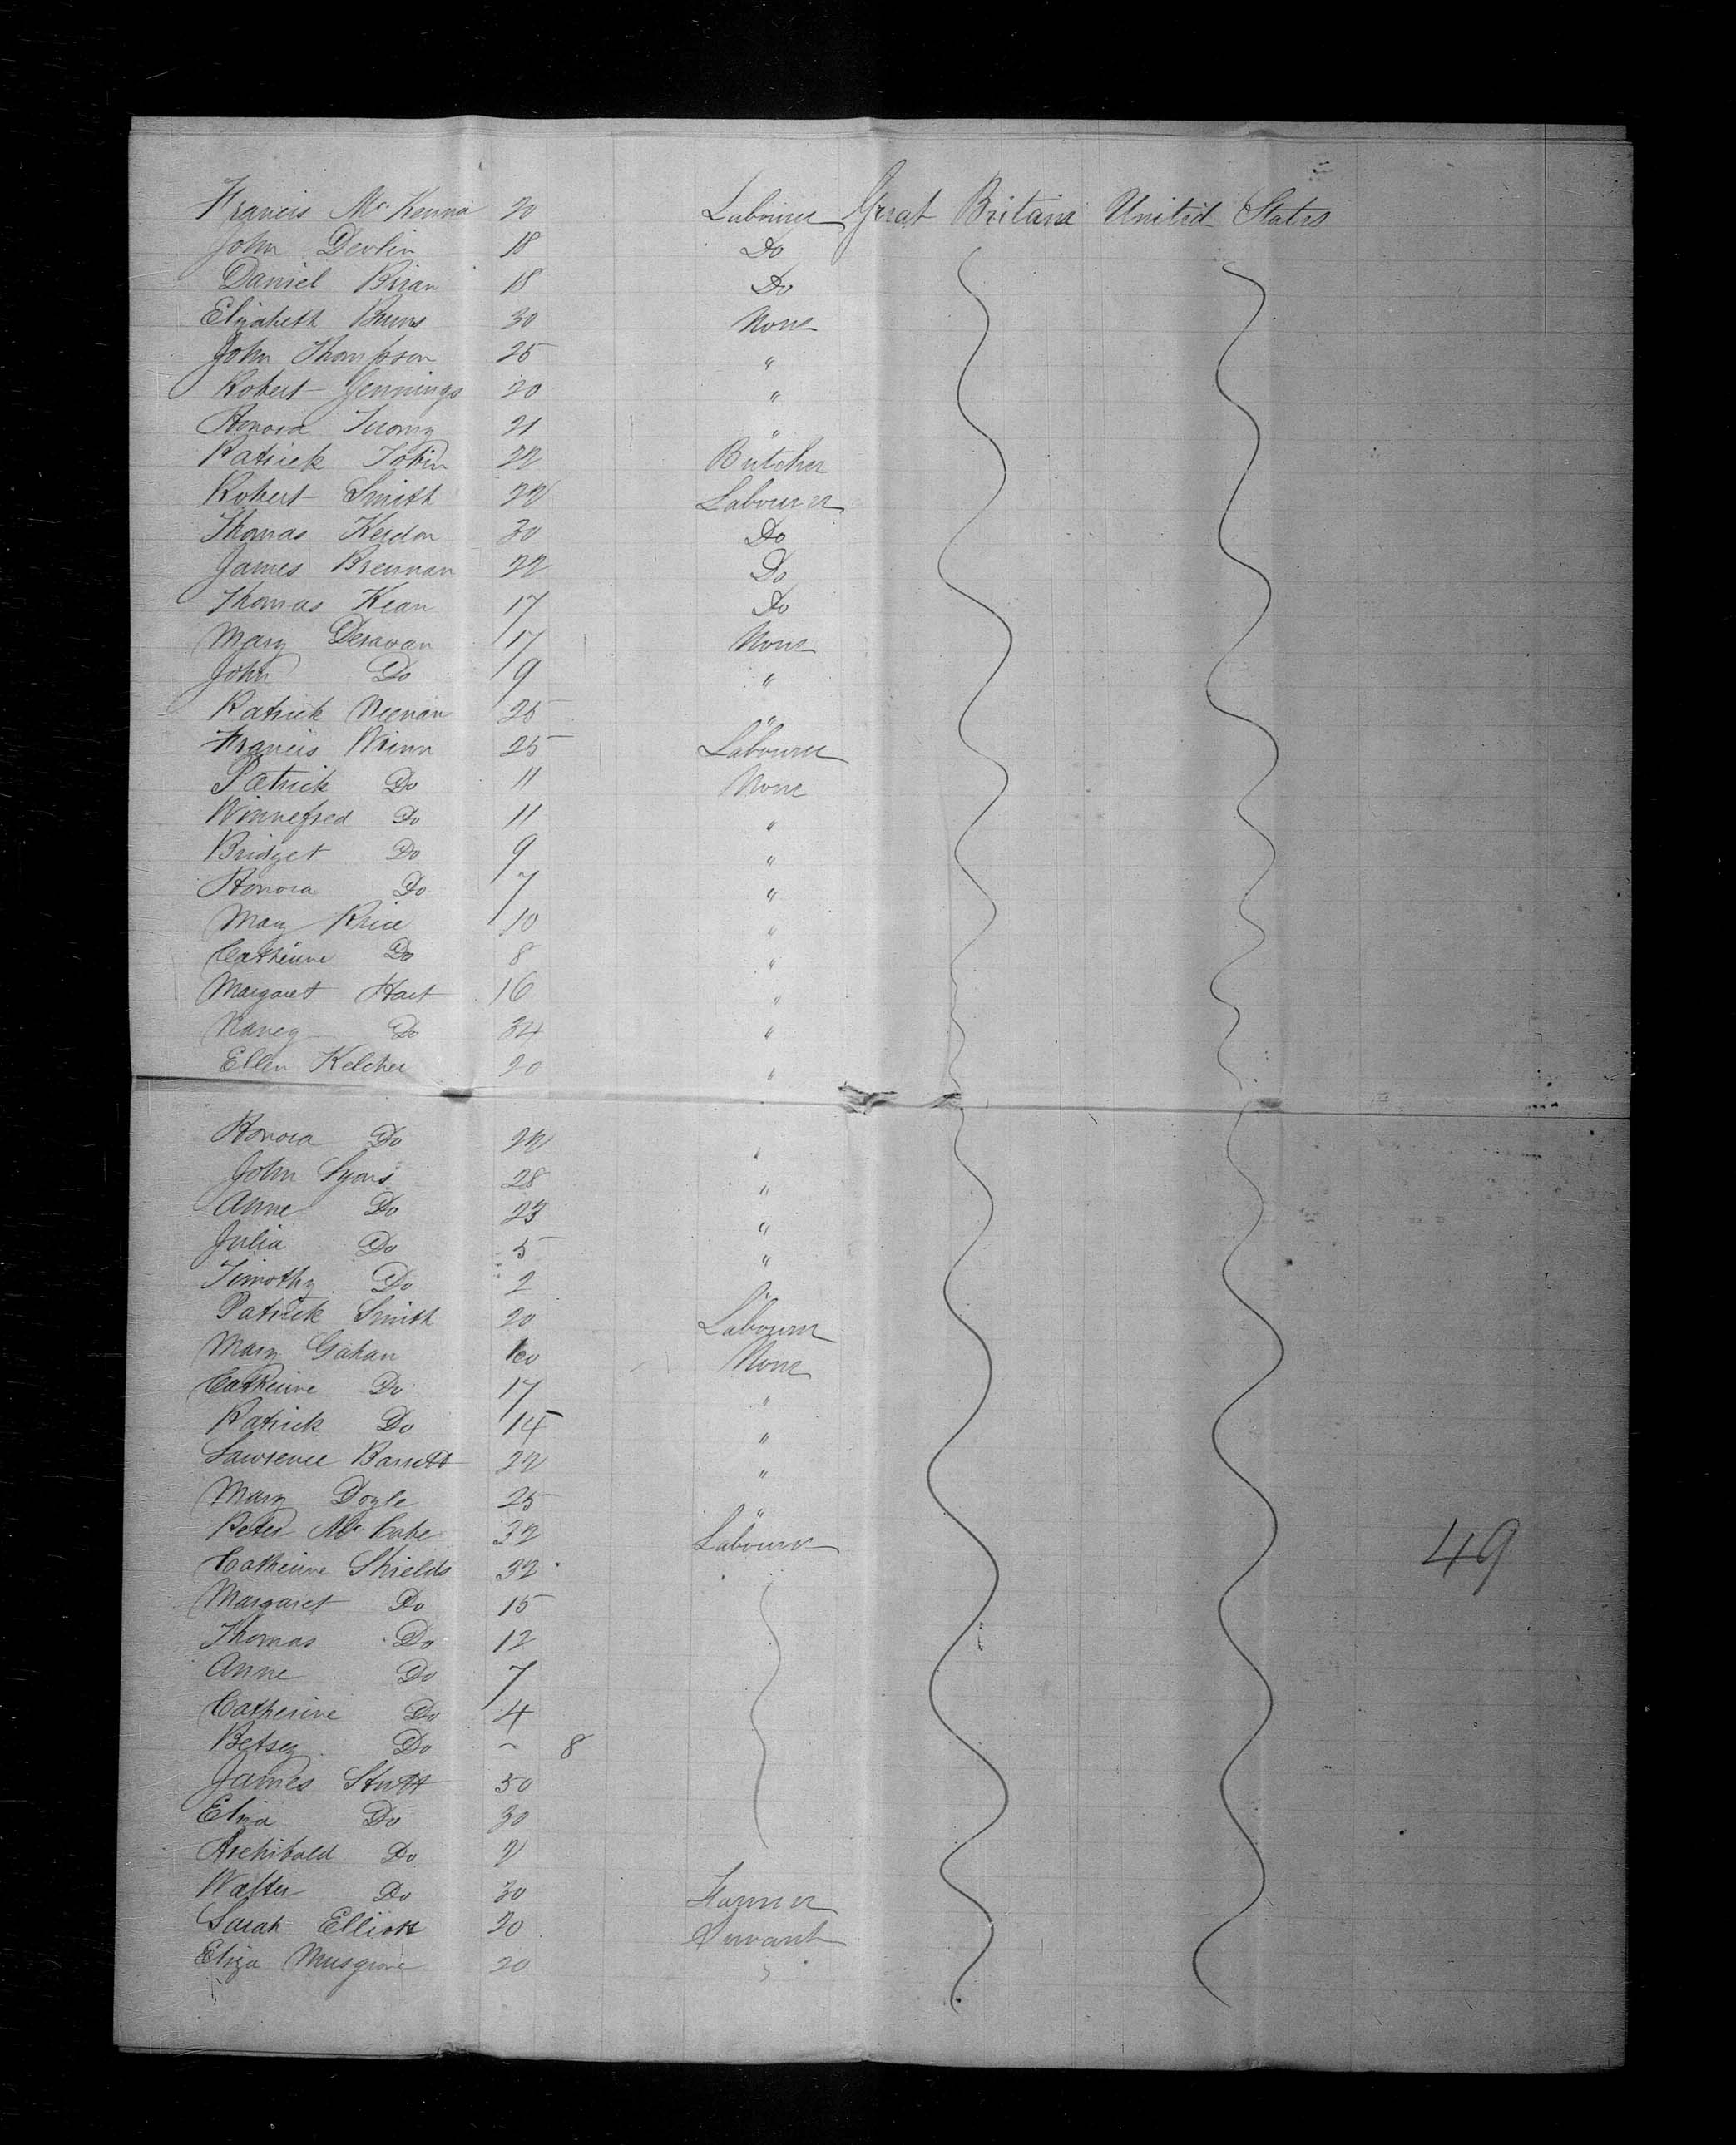 Francis McKenna 20 Labourer Great Britain United States
John Devlin 18 Do
Daniel 18 Do
Elizabeth Burns 30 None
John Thompson 25 "
Robert Jennings 20 "
Honora Tuomy 21 "
Patrick Tobin 22 Butcher
Robert Smith 22 Labourer
Thomas 30 Do
James Brennan 22 Do
Thomas Kean 17 Do
Mary 17 None
John Do 9 "
Patrick Neenan 25 "
Francis 25 Labourer
Patrick Do 11 None
Winnefred Do 11 "
Bridget Do 9 "
Honora Do 7 "
Mary Price 10 "
Catherine Do 8 "
Margaret Hart 16 "
Nancy Do 34 "
Ellen Kelcher 20 "
Honora Do 22 "
John Lyons 28 "
Anne Do 23 "
Julia Do 5 "
Timothy Do 2 "
Patrick Smith 20 Labourer
Mary Gahan None
Catherine Do 17 "
Patrick Do 14 "
Lawrence Barrett 22 "
Mary Doyle 25 "
Peter McCabe 32 Labourer
Catherine Shields 32
Margaret Do 15
Thomas Do 12
Anne Do 7
Catherine Do 4
Betsey Do ~ 8
James Stutt 50
Eliza Do 30
Archibald Do 2
Walter Do 30 Farmer
Sarah Elliott 20 Servant
Eliza Musgrove 20 "
49